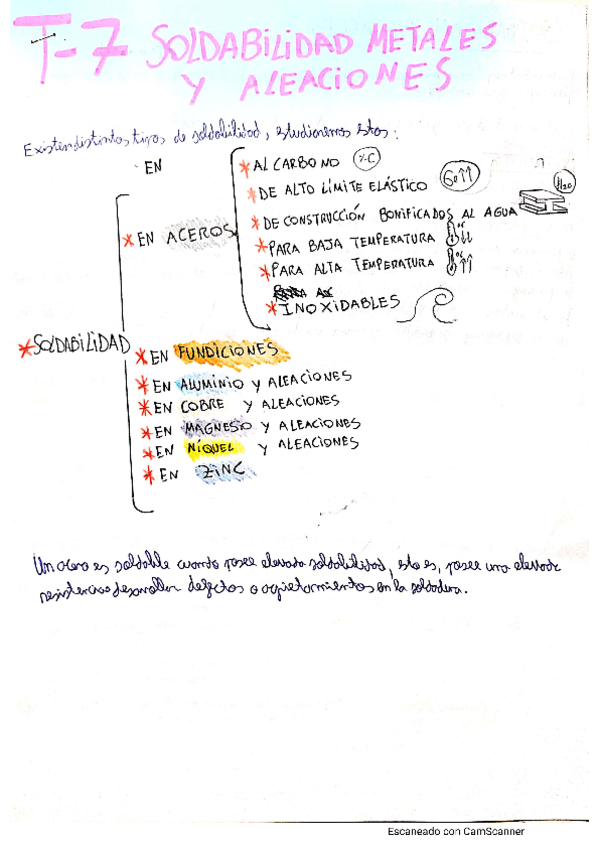 T-7 SOLDABILIDAD METALES
Y ALEACIONES
Existen distintos tipos de soldabilidad, estudiaremos estos:
EN
* SOLDABILIDAD
* EN ACEROS
* AL CARBONO %C
* DE ALTO LÍMITE ELÁSTICO ↑↑
* DE CONSTRUCCIÓN BONIFICADOS AL AGUA H2O
* PARA BAJA TEMPERATURA ºC ↓↓
* PARA ALTA TEMPERATURA ºC ↑↑
* INOXIDABLES
* EN FUNDICIONES
* EN ALUMINIO Y ALEACIONES
* EN COBRE Y ALEACIONES
* EN MAGNESIO Y ALEACIONES
* EN NÍQUEL Y ALEACIONES
* EN ZINC
Un acero es soldable cuando posee elevada soldabilidad, esto es, posee una elevada
resistencia a desarrollar defectos o agrietamientos en la soldadura.
Escaneado con CamScanner